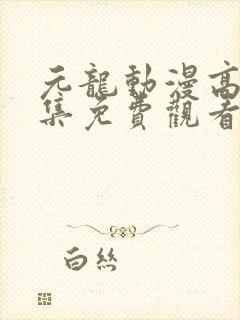 元龍動漫高
集免費觀看
白絲